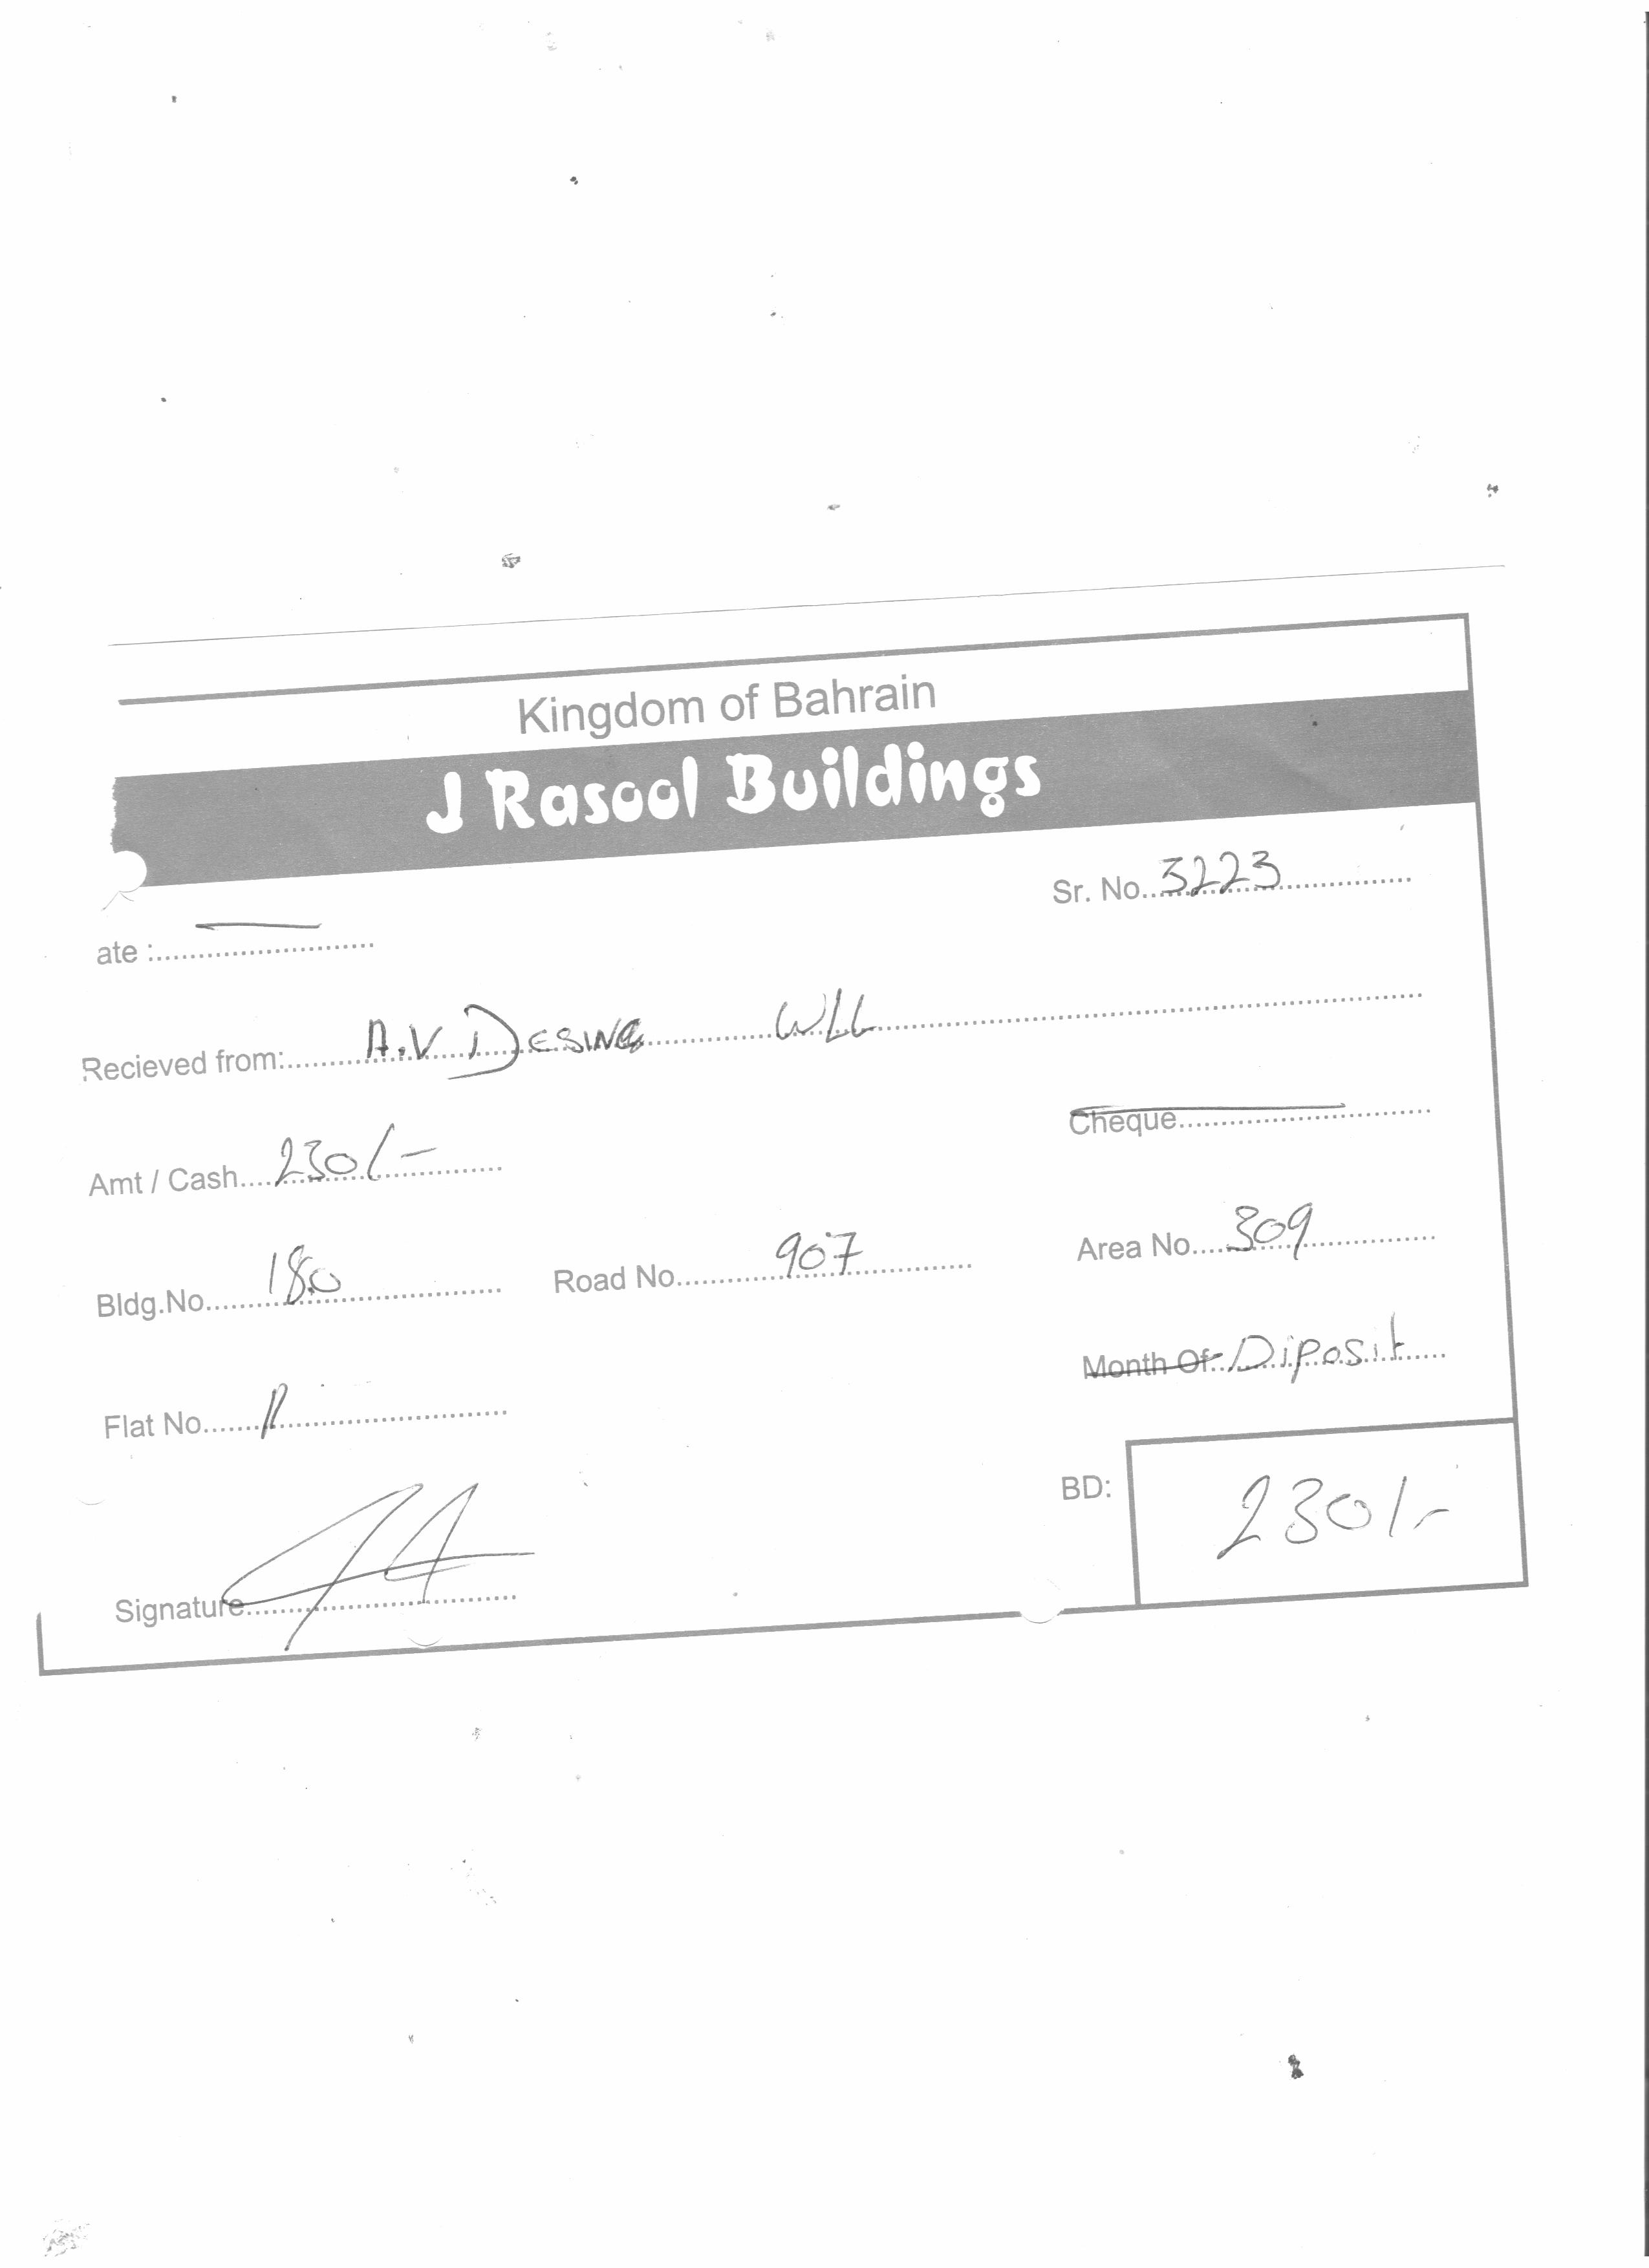 Kingdom of Bahrain
J Rasool Buildings
Sr. No. 3223
ate :
Recieved from: A.V DESING WLL
Amt / Cash 230/-
Cheque
Bldg.No. 180 Road No. 907 Area No. 309
Flat No. 11
Month Of Diposit
BD: 230/-
Signature